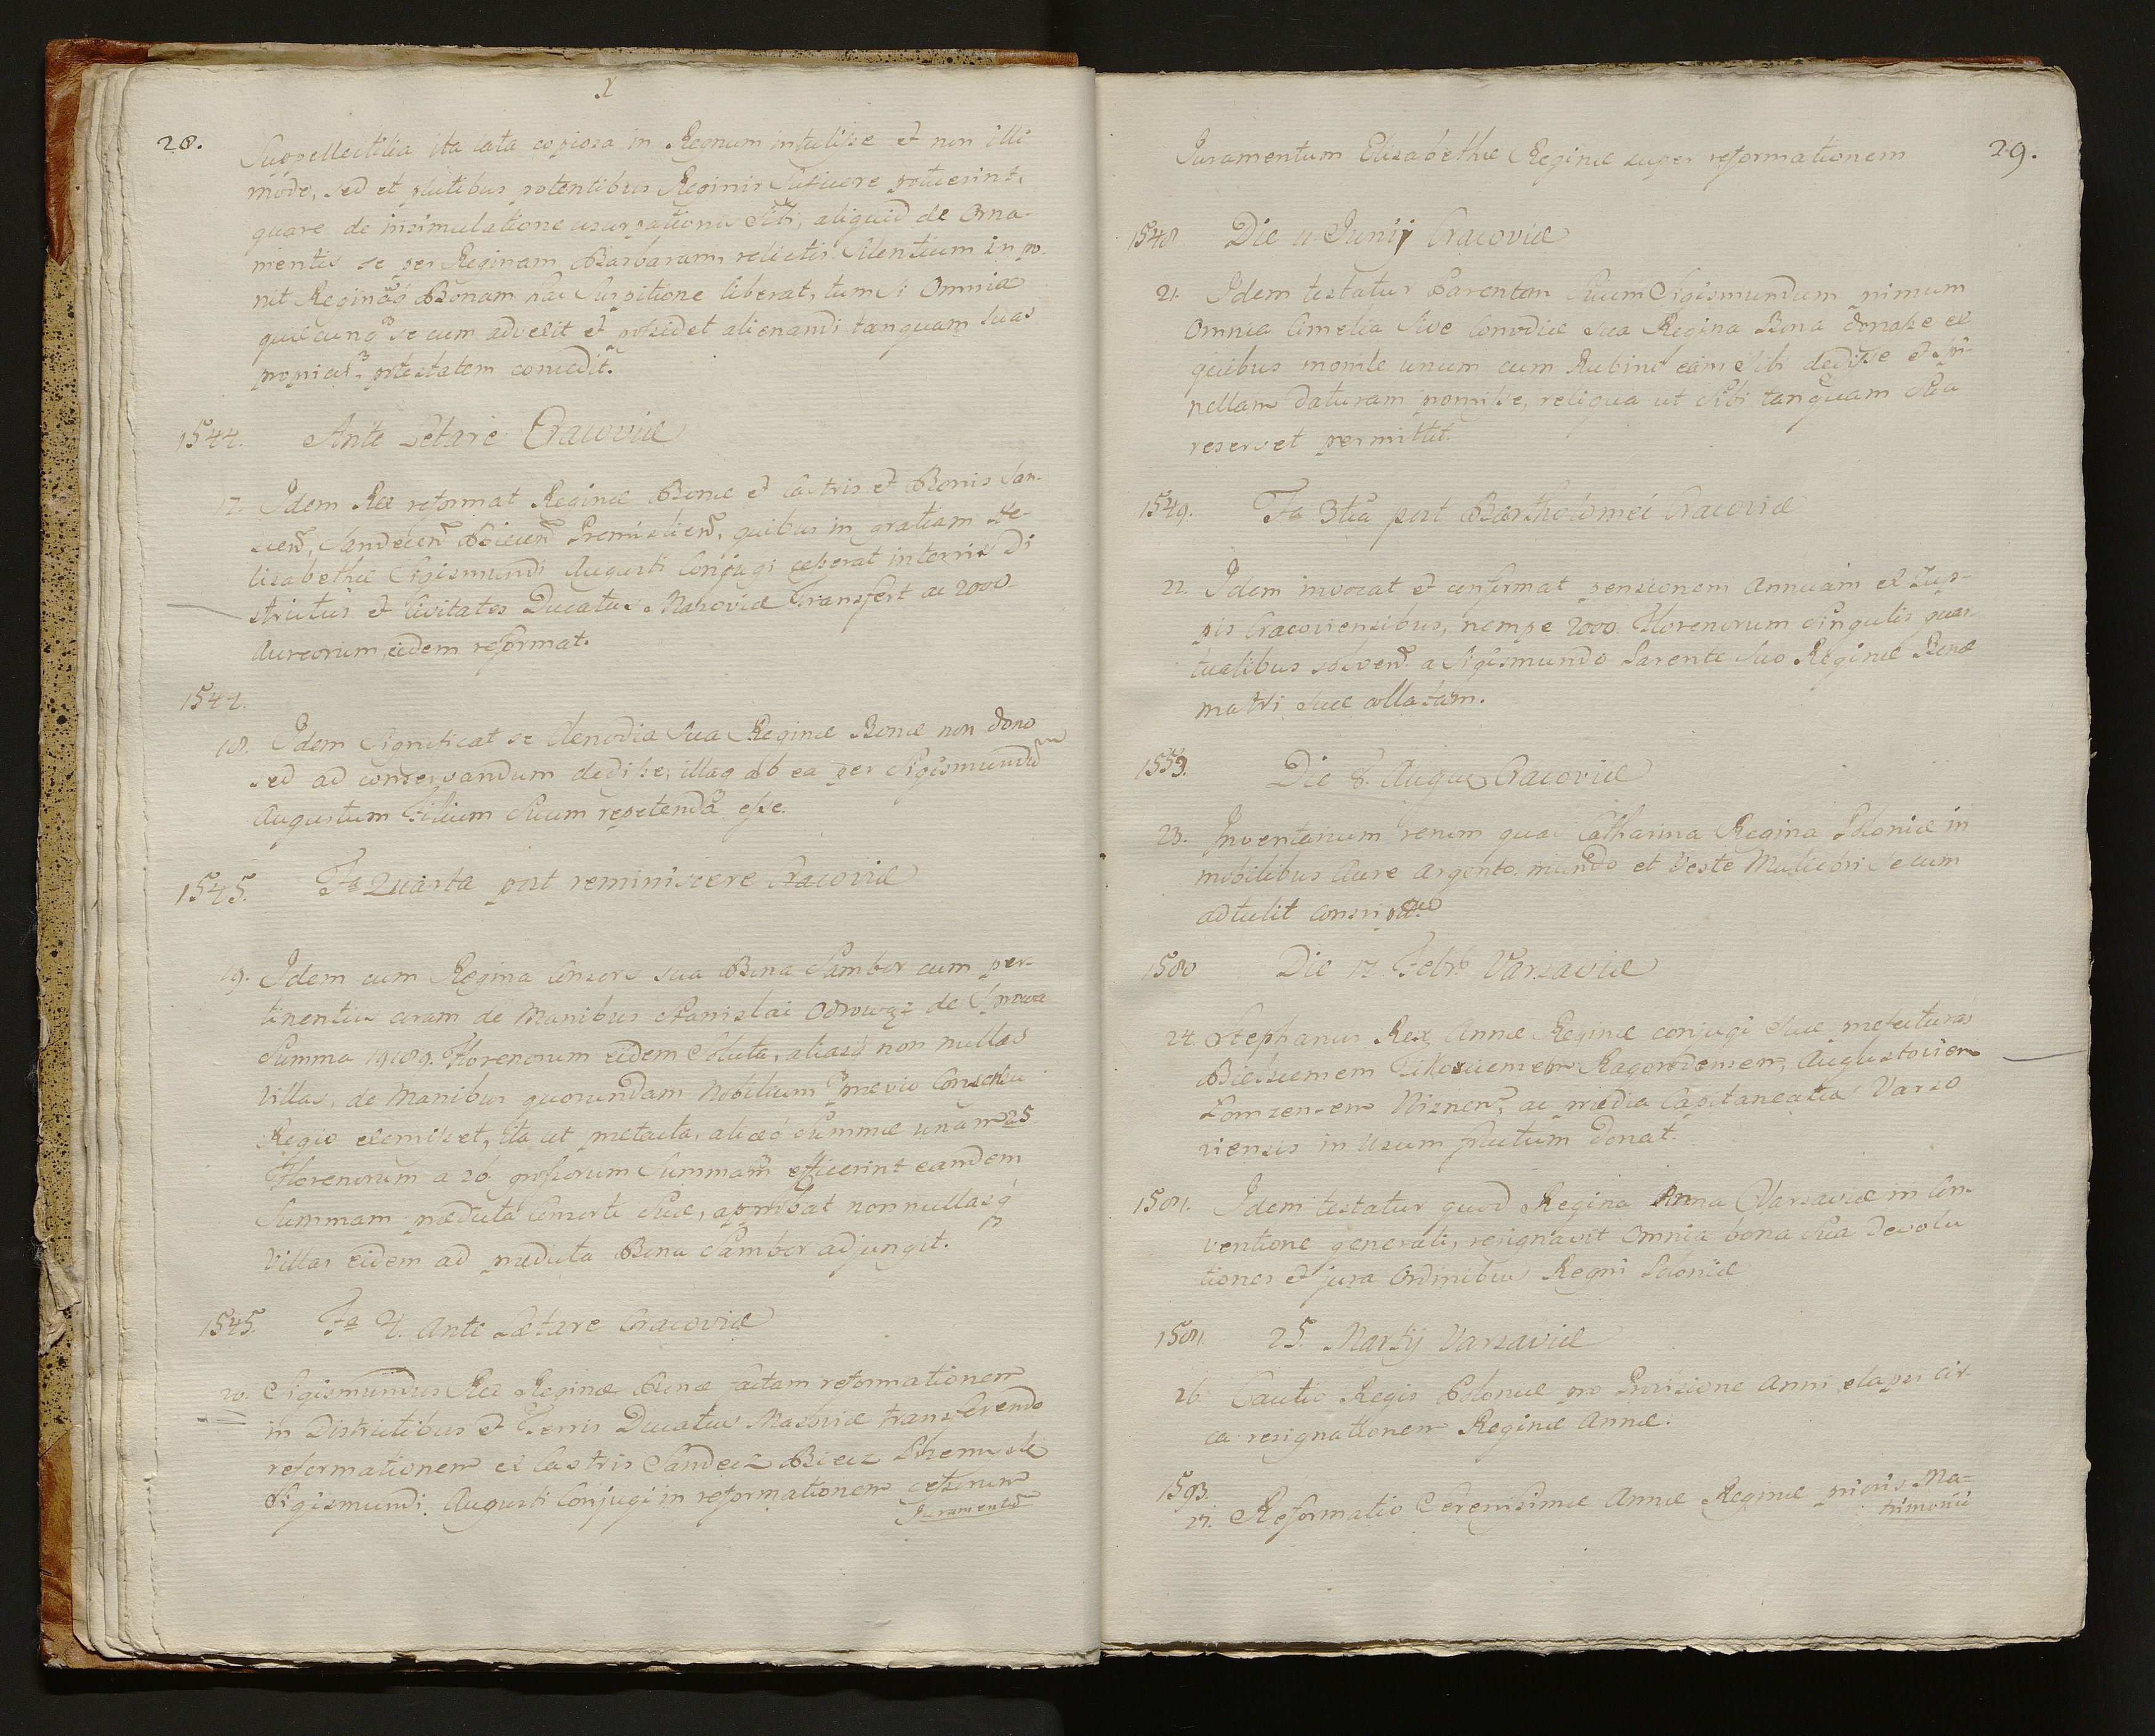 28.
Suppellectilia ita lata copiosa in Regnum intulisse et non illi
modo, sed et plutibus potentibus Reginis suficere potuerint,
quare de insimulatione usurpationis sibi, aliquid de Orna-
mentis se per Reginam Barbaram relictis silentium impo-
nit Reginaq Bonam hac suspitione liberat, tum si Omnia
quæcunq secum advexit et posidet alienandi tanquam suas
proprias potestatem concedit.
1544. Ante Letare Cracoviæ
17. Idem Rex reformat Reginæ Bonæ et Castris et Bonis San-
Sandecen Biecen Premislien, quibus in gratiam He-
lisabethæ Sigismundi Augusti Conjugi cesserat in terris di
strictus et Civitates Ducatus Masoviæ Transfert ac 2000
Aureorum eidem reformat.
1544.
18. Idem significat se Clenodia sua Reginæ Bonæ non dono
sed ad conservandum dedisse, illaq ab ea per Sigismundum
Augustum Filium suum repetenda esse.
1545. Fa Quarta post reminiscere Cracoviæ
19. Idem cum Regina Consorte sua Bona Sambor cum per-
tinentiis ceram de Manibus Stanislai Odrowąż de Sprowa
Summa 19189. Florenorum eidem Soluta, aliasq non nullas
villas, de Manibus quorundam Nobilium prævio Consensu
Regio exemisset, ita ut præfacta, aliæq summæ unam 25
Florenorum a 20 grossorum Summam efficerint eandem
Summam prædicta Consorti suæ, aprobat nonnullasq
villas eidem ad prædicta Bona Sambor adjungit.
1545. Fa 4. Ante Lætare Cracoviæ
20. Sigismundus Rex Reginæ Bonæ factam reformationem
in Districtibus et Terris Ducatus Masoviæ transferendo
reformationem ex Castris Sandecz Biecz Phemisle
Sigismundi Augusti Conjugi in reformationem cessarum
Juramentum
29.
Juramentum Elisabethæ Reginæ super reformationem
1548 Die 4 Junij Cracoviæ
21. Idem testatur Parentem suum Sigismundum primum
omnia Cimelia sive Conodia sua Regina Bona donasse ex
quibus monile unum cum Rubino eam sibi dedisse et Spi-
nellam daturam promisse, reliqua ut sibi tanquam sua
reservet permittit.
1549. Fa 3tia post Bartholomei Cracoviæ
22. Idem inovat et confirmat pensionem Annuam ex Zup-
pis Cracoviensibus, nempe 2000. Florenorum singulis quar-
tualibus solven a Sigismundo Parente suo Reginæ Bonæ
matri suæ collatam.
1553. Die 8. Augus Cracoviæ
23. Inventarium rerum quas Catharina Regina Poloniæ in
mobilibus Auro Argento mundo et Veste Muliebri secum
adtulit conscriptio
1580 Die 17 Febr Varsaviæ
24. Stephanus Rex Annæ Reginæ conjugi suæ præfecturas
Bielscensem Tikocinensem Ragorodensem, Augustovien
Lomzensem Niznen, ac prædia Capitaneatus Varso
viensis in Usum fructum donat.
1581. Idem testatur quod Regina Anna Varsaviæ in Con-
ventione generali, resignavit Omnia bona sua devolu
tiones et jura Ordinibus Regni Poloniæ
1581. 25. Martij Varsaviæ
26. Cautio Regis Poloniæ pro Provisione Anni elapsi cir-
ca resignationem Reginæ Annæ.
1593.
27. Reformatio Serenissimæ Annæ Reginæ prioris Ma-
trimonii